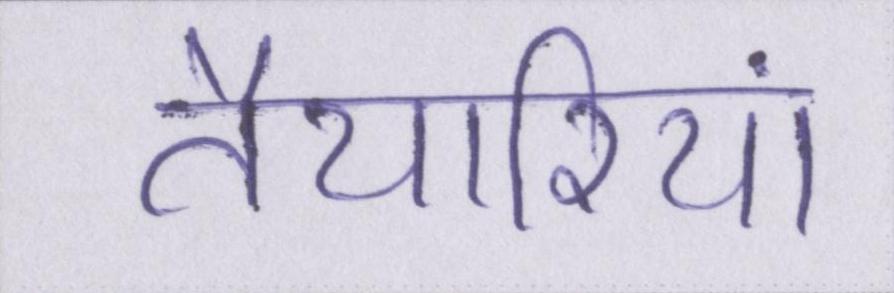 तैयारियां